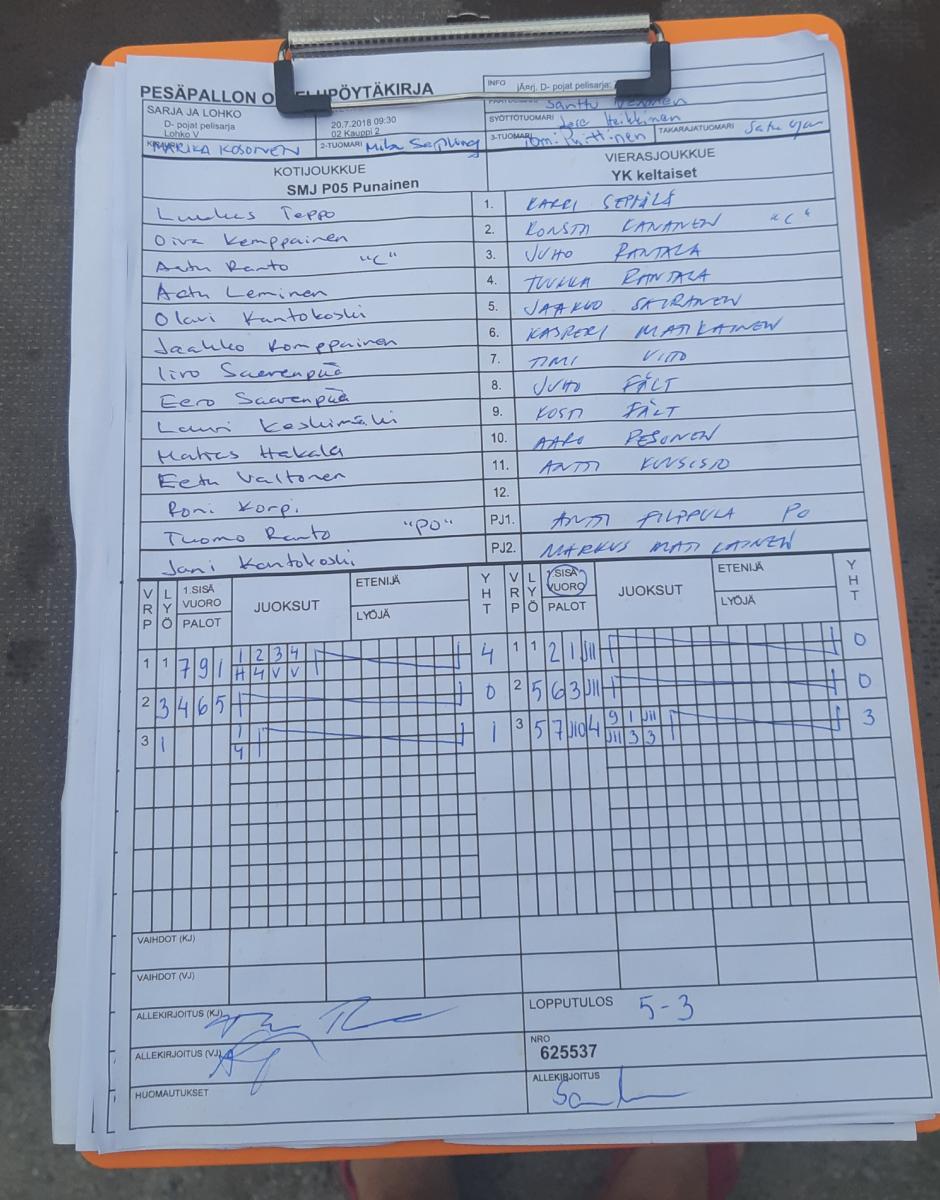 PESÄPALLON O ELUPÖYTÄKIRJA
INFO jÄrj. D- pojat pelisarja;
SARJA JA LOHKO
D- pojat pelisarja
Lohko V
20.7.2018 09:30
02 Kauppi 2
Santtu
SYÖTTÖTUOMARI Heikkinen
MARIKA KOSONEN
2-TUOMARI Mika
3-TUOMARI
TAKARAJATUOMARI Satu
KOTIJOUKKUE
SMJ P05 Punainen
VIERASJOUKKUE
YK keltaiset
Luukas Teppo 1. KARRI SEPPÄLÄ
Oiva Kemppainen 2. KONSTA KANANEN "C"
Aatu Ranto "C" 3. JUHO RANTALA
Aatu Leminen 4. TUUKKA RANTALA
Olavi Kantokoski 5. JAAKKO SAIRANEN
Jaakko Komppainen 6. KASPERI MATIKAINEN
Iiro Saarenpää 7. TIMI
Eero Saarenpää 8. JUHO FÄLT
Lauri Keskimäki 9. KOSTI FÄLT
Matias Hakala 10. AARO PESONEN
Eetu Valtonen 11. ANTTI KUUSISTO
Roni Korpi 12.
Tuomo Ranto "PO" PJ1. ANTTI FILPPULA PO
Jani Kantokoski PJ2. MARKUS MATIKAINEN
VRP LYÖ 1.SISÄ VUORO PALOT JUOKSUT ETENIJÄ LYÖJÄ YHT VRP LYÖ SISÄ VUORO PALOT JUOKSUT ETENIJÄ LYÖJÄ YHT
1 1 7 9 1 1 2 3 4 4 1 1 2 1 J11 0
H 4 V V
2 3 4 6 5 0 2 5 6 3 J11 0
3 1 1 1 3 5 7 J10 4 9 1 J11 3
4 J11 3 3
VAIHDOT (KJ)
VAIHDOT (VJ)
ALLEKIRJOITUS (KJ)
LOPPUTULOS 5-3
ALLEKIRJOITUS (VJ)
NRO
625537
HUOMAUTUKSET
ALLEKIRJOITUS